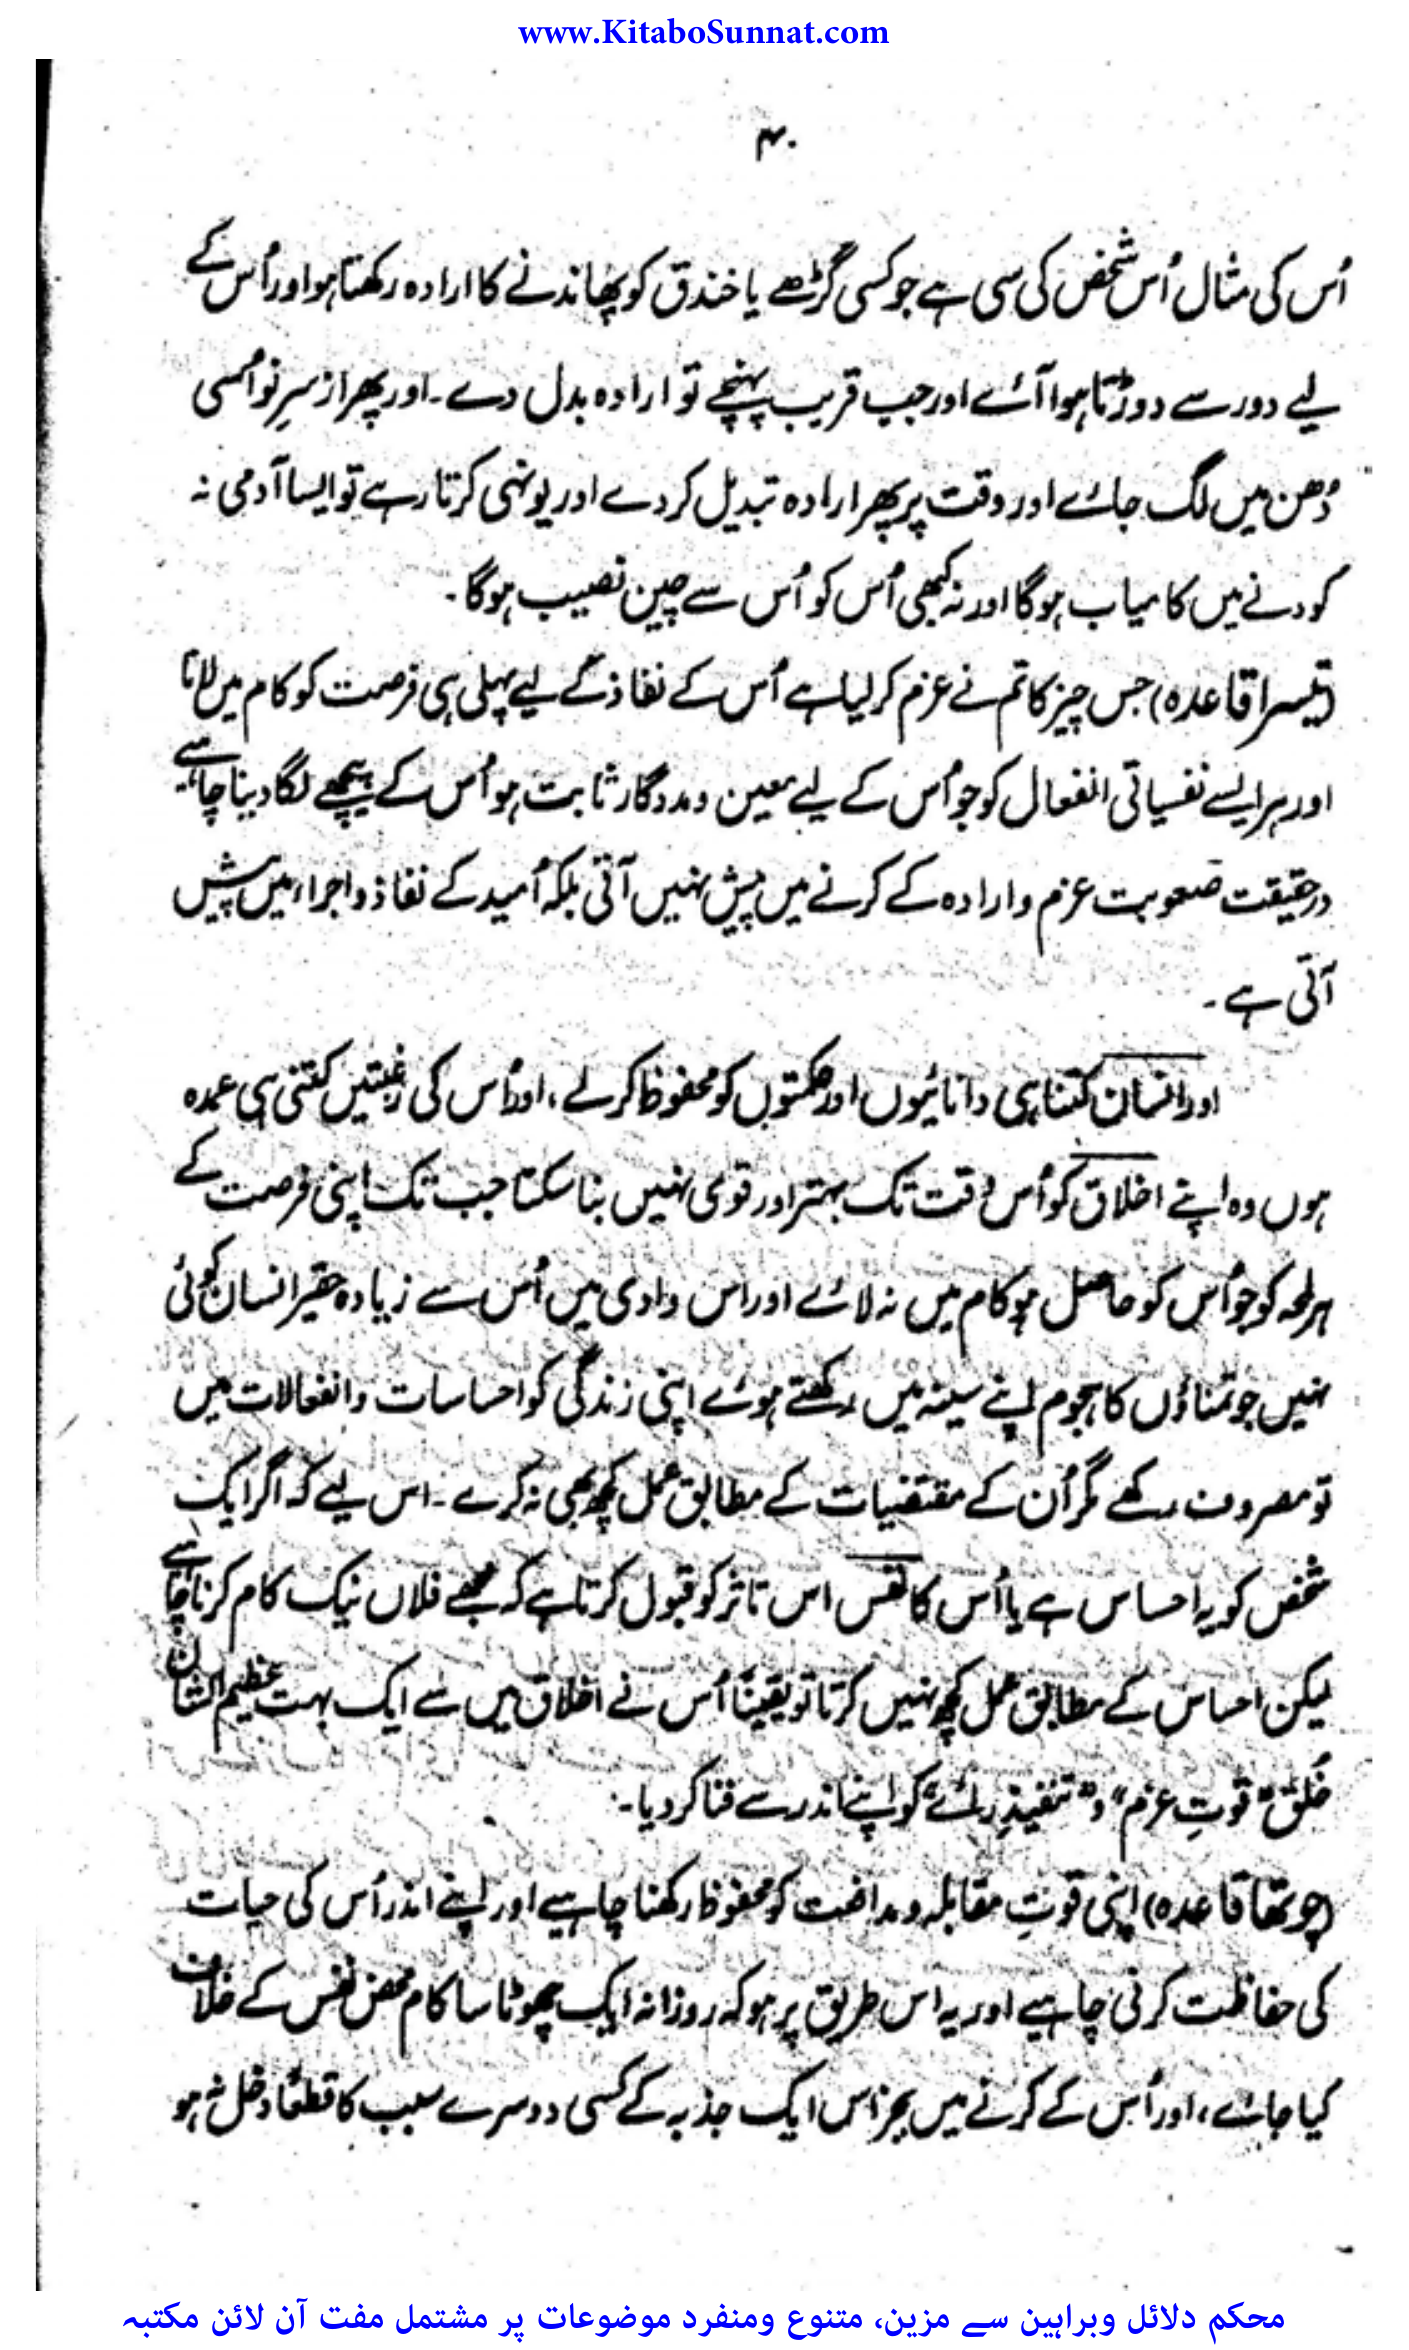 www.KitaboSunnat.com
۴۰
اُس کی مثال اُس شخص کی سی ہے جو کسی گڑھے یا خندق کو پھاندنے کا ارادہ رکھتا ہو اور اُس کے
لیے دور سے دوڑتا ہوا آئے اور جب قریب پہنچے تو ارادہ بدل دے۔ اور پھر از سرِ نو اُسی
دُھن میں لگ جائے اور وقت پر پھر ارادہ تبدیل کر دے اور یونہی کرتا رہے تو ایسا آدمی نہ
کودنے میں کامیاب ہوگا اور نہ کبھی اُس کو اُس سے چین نصیب ہوگا۔
(تیسرا قاعدہ) جس چیز کا تم نے عزم کر لیا ہے اُس کے نفاذ کے لیے پہلی ہی فرصت کو کام میں لانا
اور ہر ایسے نفسیاتی انفعال کو جو اُس کے لیے معین و مددگار ثابت ہو اُس کے پیچھے لگا دینا چاہیے
درحقیقت صعوبت عزم و ارادہ کے کرنے میں پیش نہیں آتی بلکہ اُمید کے نفاذ و اجراء میں پیش
آتی ہے۔
اور انسان کتنا ہی دانائیوں اور حکمتوں کو محفوظ کر لے، اور اُس کی رغبتیں کتنی ہی عمدہ
ہوں وہ اپنے اخلاق کو اُس وقت تک بہتر اور قوی نہیں بنا سکتا جب تک اپنی فرصت کے
ہر لمحہ کو جو اُس کو حاصل ہو کام میں نہ لائے اور اس وادی میں اُس سے زیادہ حقیر انسان کوئی
نہیں جو تمناؤں کا ہجوم اپنے سینہ میں رکھتے ہوئے اپنی زندگی کو احساسات و انفعالات میں
تو مصروف رکھے مگر اُن کے مقتضیات کے مطابق عمل کچھ بھی نہ کرے۔ اس لیے کہ اگر ایک
شخص کو یہ احساس ہے یا اُس کا نفس اس تاثر کو قبول کرتا ہے کہ مجھے فلاں نیک کام کرنا چاہیے
لیکن احساس کے مطابق عمل کچھ نہیں کرتا تو یقیناً اُس نے اخلاق میں سے ایک بہت عظیم الشان
خُلق "قوتِ عزم" و "تنفیذِ رائے" کو اپنے اندر سے فنا کر دیا۔
(چوتھا قاعدہ) اپنی قوتِ مقابلہ و مدافعت کو محفوظ رکھنا چاہیے اور اپنے اندر اُس کی حیات
کی حفاظت کرنی چاہیے اور یہ اس طریق پر ہو کہ روزانہ ایک چھوٹا سا کام محض نفس کے خلاف
کیا جائے، اور اُس کے کرنے میں بجز اس ایک جذبہ کے کسی دوسرے سبب کا قطعاً دخل نہ ہو
محکم دلائل وبراہین سے مزین، متنوع ومنفرد موضوعات پر مشتمل مفت آن لائن مکتبہ